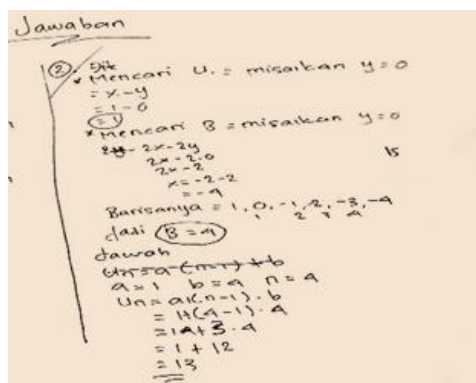 Jawaban
②. Dit
* Mencari U₁ = misalkan y=0
= x-y
= 1-0
= 1
* Mencari B = misalkan y=0
2y- 2x-2y
2x-2.0
2x-2
x=-2-2
= -4
15
Barisanya = 1, 0, -1, -2, -3, -4
1 2 3 4
Jadi B = 4
Jawab
Un = a (n-1) + b
a = 1 b = 4 n = 4
Un = a+(n-1) . b
= 1+(4-1) . 4
= 1+3 . 4
= 1 + 12
= 13